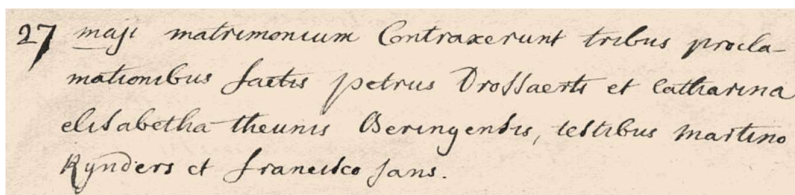 27 maji matrimonium Contraxerunt tribus procla-
mationibus factis petrus Drossaerts et Catharina
elisabetha theunis Beringensis, testibus martino
Rynders et francisco Jans.